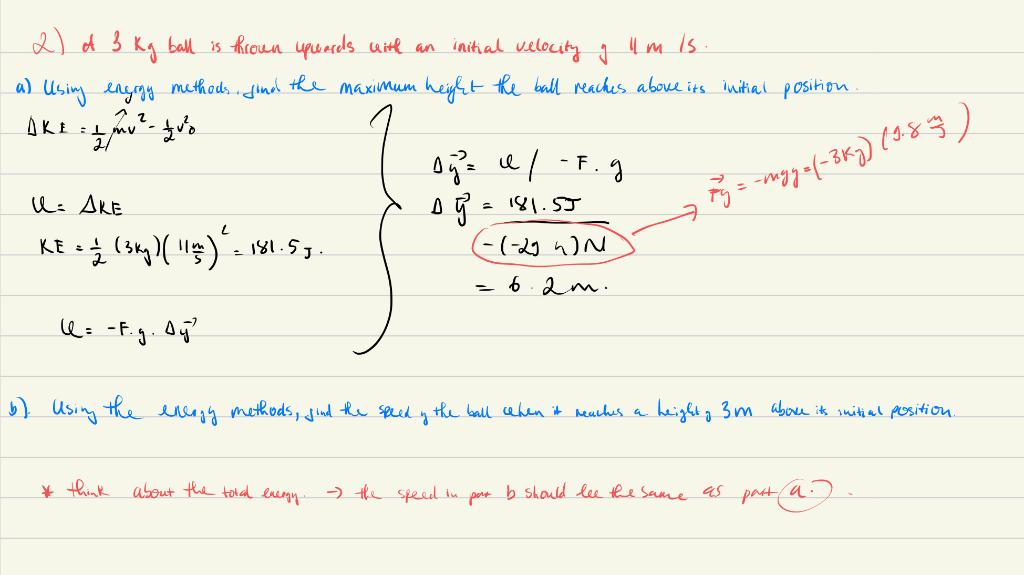 2) A 3 Kg ball is thrown upwards with an initial velocity of 11 m/s.
a) Using energy methods, find the maximum height the ball reaches above its initial position.
ΔKE = 1/2 mv² - 1/2 v²0
U = ΔKE
KE = 1/2 (3kg)(11 m/s)² = 181.5 J.
U = -F.g. Δy→
Δy→ = U / -F.g
Δy→ = 181.5J
-(-29 4)N
= 6.2m.
F→g = -mgy = (-3Kg)(9.8 m/s)
b). Using the energy methods, find the speed of the ball when it reaches a height of 3m above its initial position.
* think about the total energy. → the speed in part b should be the same as part a.